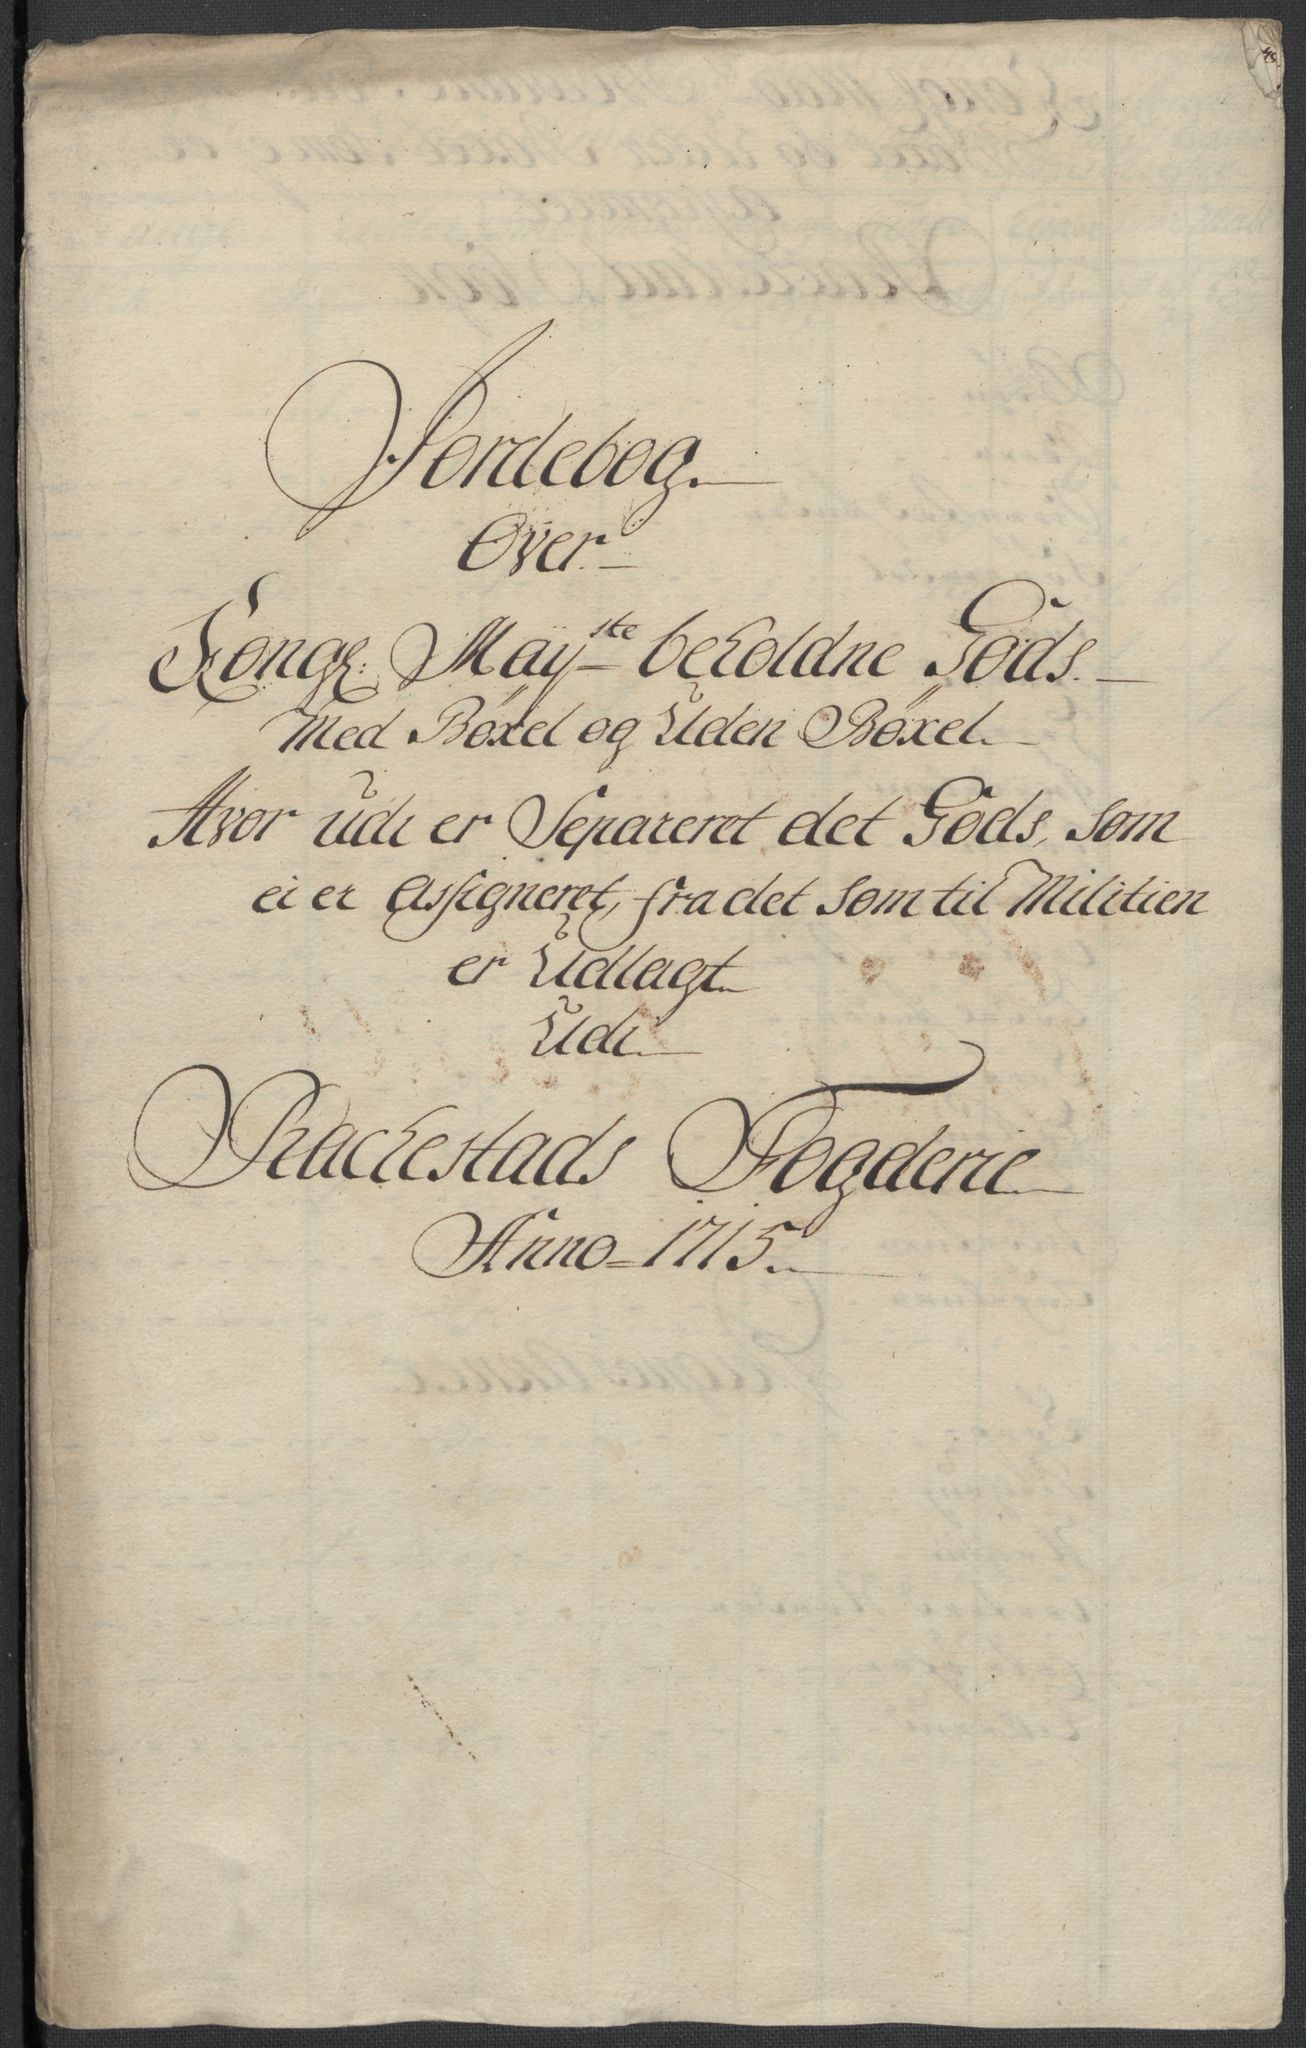 Jordebog
Over
Kongl: Mayste beholdne Gods.
Med Böxel og Uden Böxel
Hvor udi er Separeret det Gods, som
ei er Assigneret, fra det som til Militien
er Udlagt
Udi
Rackestads Fogderie
Anno 1715.